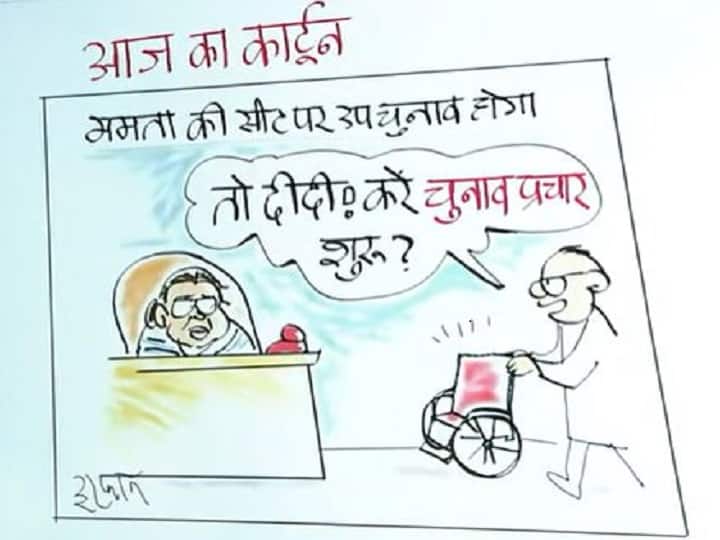 आज का कार्टून
ममता की सीट पर उपचुनाव होगा
तो दीदी! करें चुनाव प्रचार
शुरू?
इरफान